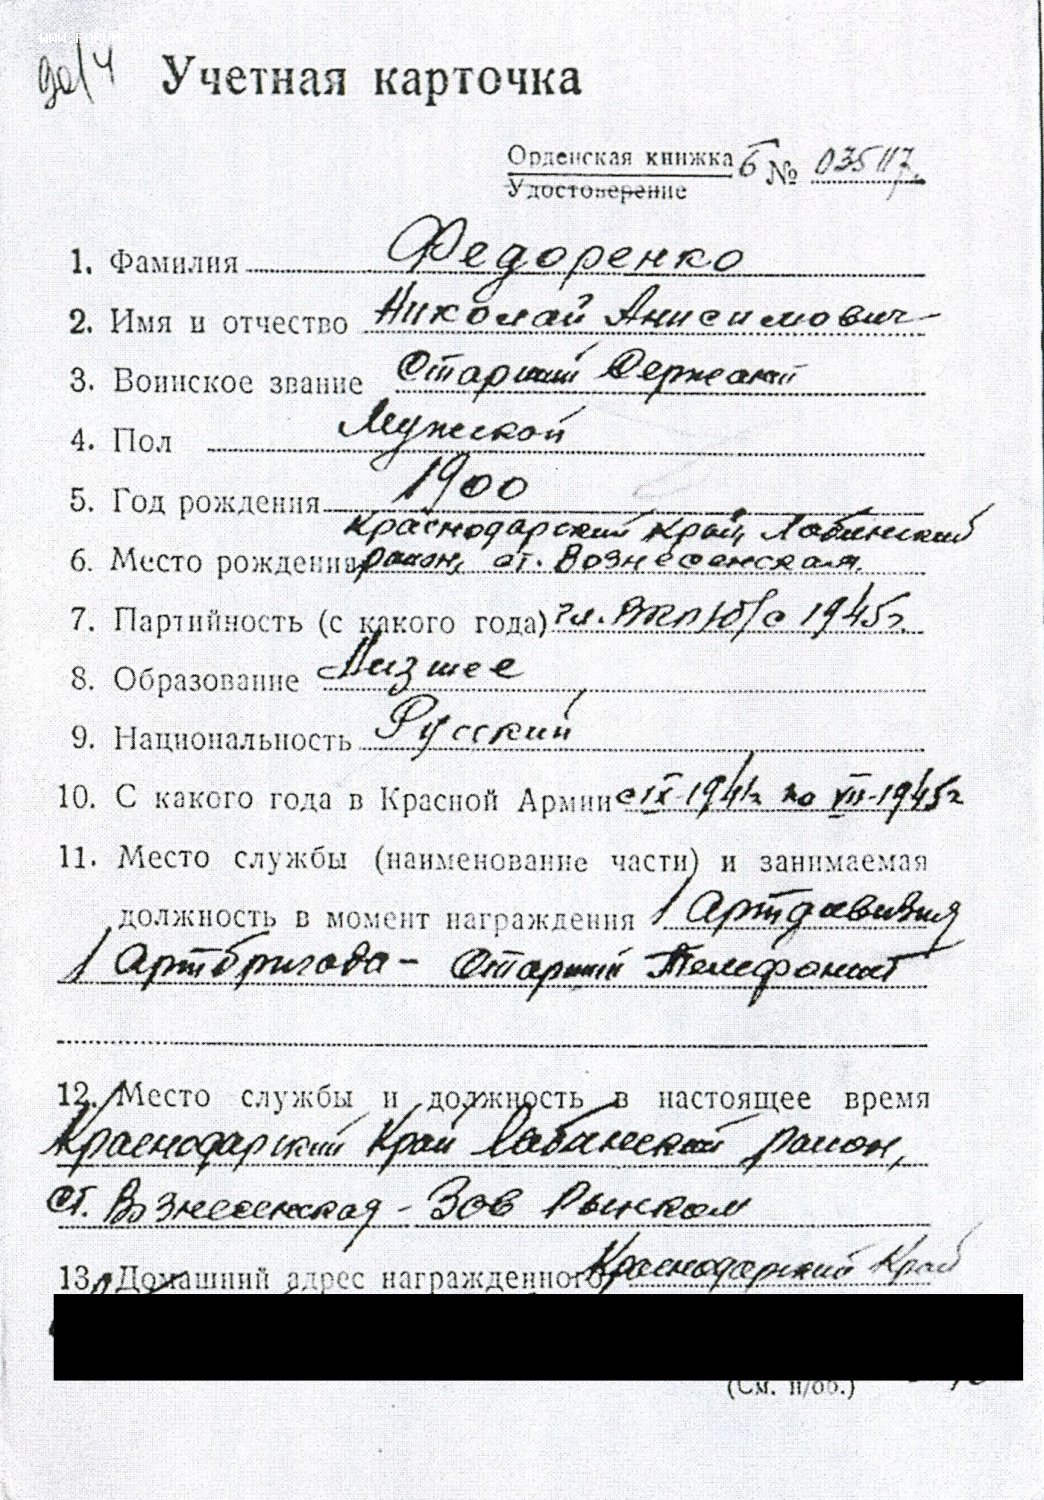 до/ч
Учетная карточка
Орденская книжка Б № 035117.
Удостоверение
1. Фамилия Федоренко
2. Имя и отчество Николай Анисимович
3. Воинское звание Старший Сержант
4. Пол Мужской
5. Год рождения 1900
Краснодарский край, Лабинский
6. Место рождения район, ст. Вознесенская.
7. Партийность (с какого года) чл. ВКП/б/ с 1945г.
8. Образование Низшее
9. Национальность Русский
10. С какого года в Красной Армии с IX-1941г по VII-1945г
11. Место службы (наименование части) и занимаемая
должность в момент награждения 1 Артдивизия
1 Артбригада - Старший Телефонист
12. Место службы и должность в настоящее время
Краснодарский Край Лабинский район,
ст. Вознесенская - Зав Рынком
13. Домашний адрес награжденного Краснодарский Край
(См. н/об.)